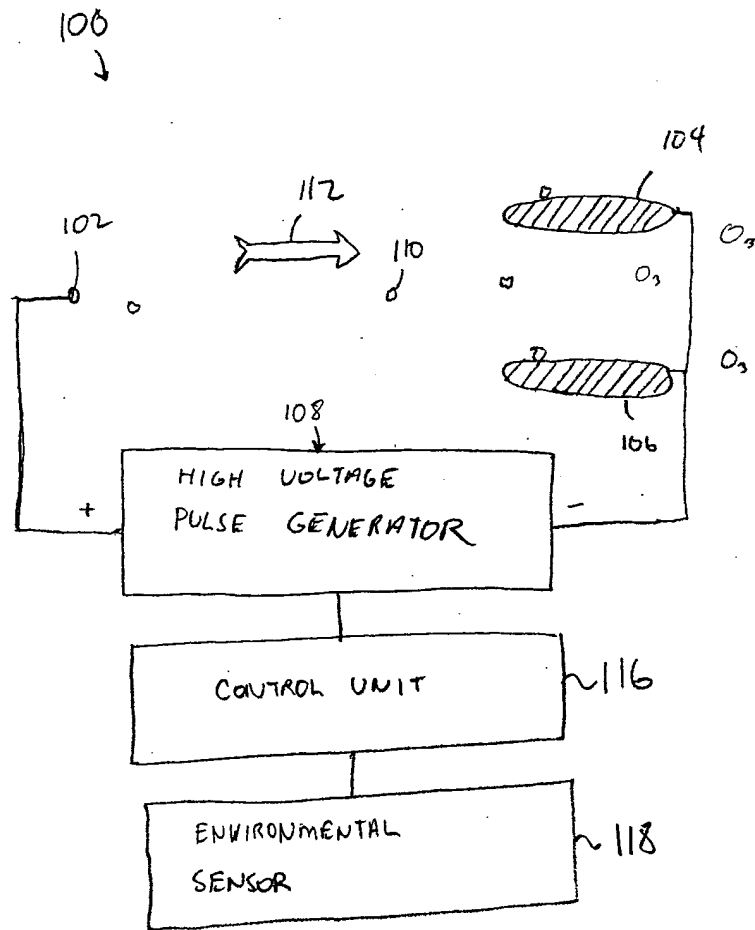 100
104
112
102
110
O₃
O₃
O₃
106
108
HIGH VOLTAGE
+
PULSE GENERATOR
-
CONTROL UNIT
116
ENVIRONMENTAL
118
SENSOR